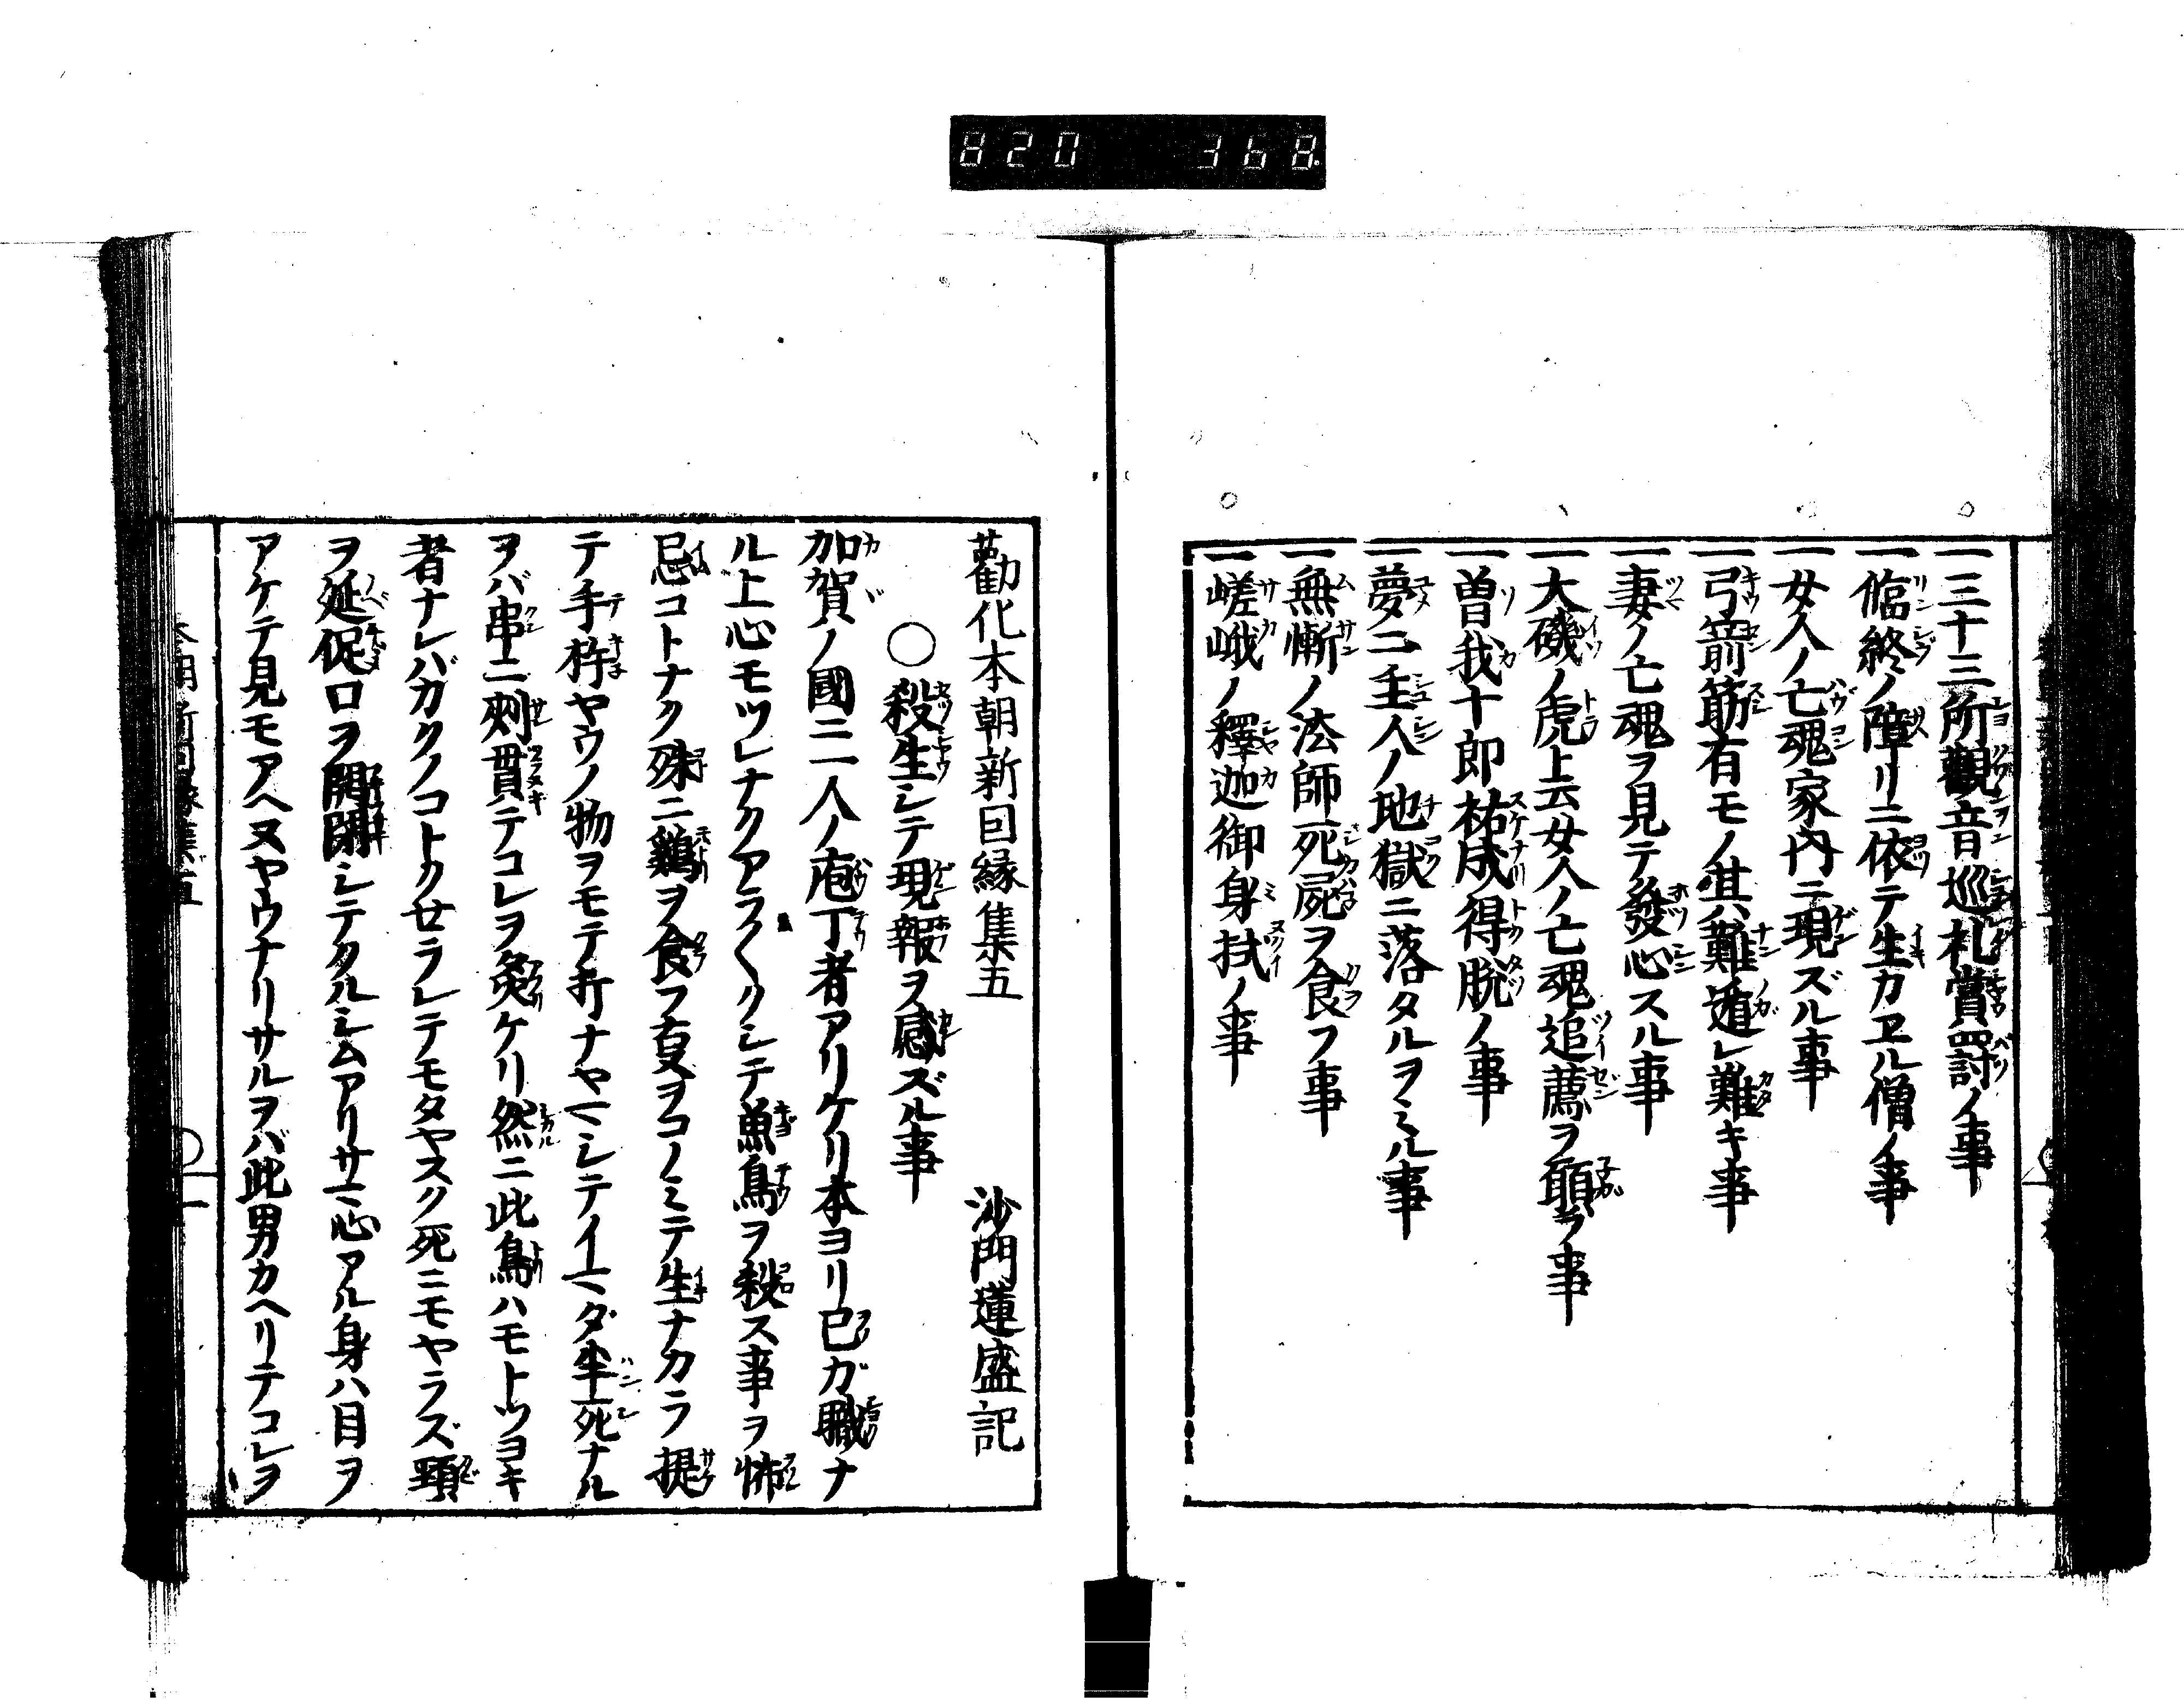 820 368
一三十三所觀音巡礼賞罸ノ事
一臨終ノ障リニ依テ生カヱル僧ノ事
一女人ノ亡魂家内ニ現ズル事
一弓箭筋有モノ其難遁レ難キ事
一妻ノ亡魂ヲ見テ發心スル事
一大磯ノ虎ト云女人ノ亡魂追薦ヲ願フ事
一曽我十郎祐成得脱ノ事
一夢ニ主人ノ地獄ニ落タルヲミル事
一無慚ノ法師死屍ヲ食フ事
一嵯峨ノ釋迦御身拭ノ事
勸化本朝新因縁集五 沙門蓮盛記
○殺生シテ現報ヲ感ズル事
加賀ノ國ニ一人ノ庖丁者アリケリ本ヨリ已ガ職ナ
ル上心モツレナクアラ〱クシテ魚鳥ヲ殺ス事ヲ怖
忌コトナク殊ニ鷄ヲ食フ亊ヲコノミテ生ナカラ提
テ手杵ヤウノ物ヲモテ打ナヤマシテイマダ半死ナル
ヲバ串ニ刺貫テコレヲ炙ケリ然ニ此鳥ハモトツヨキ
者ナレバカクノコトクセラレテモタヤスク死ニモヤラズ頸
ヲ延促口ヲ開閉シテクルシムアリサマ心アル身ハ目ヲ
アケテ見モアヘヌヤウナリサルヲバ此男カヘリテコレヲ